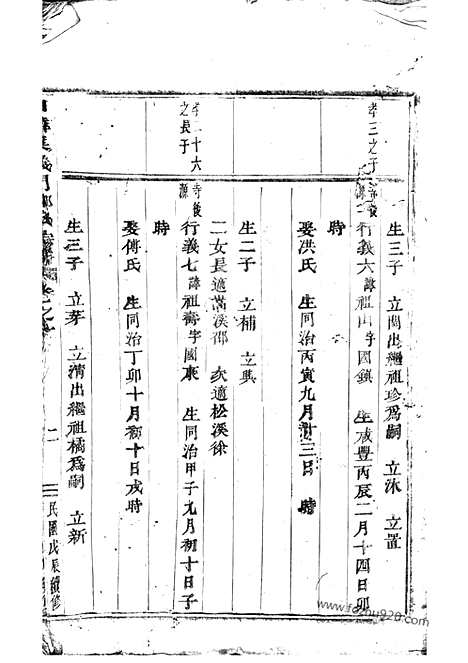 生三子 立開出繼祖珍爲嗣 立沐 立置
孝三之子
行義六諱祖山字國鎮 生咸豐丙辰二月十四日卯
時
娶洪氏 生同治丙寅九月廿三日 時
生二子 立補 立興
二女長適 溪邵 次適松溪徐
孝二十六之長子
行義七諱祖壽字國東 生同治甲子九月初十日子
時
娶傅氏 生同治丁卯十月初十日戌時
生三子 立芽 立清出繼祖橘爲嗣 立新
二 民國戊辰續修
www.fozhu920.com